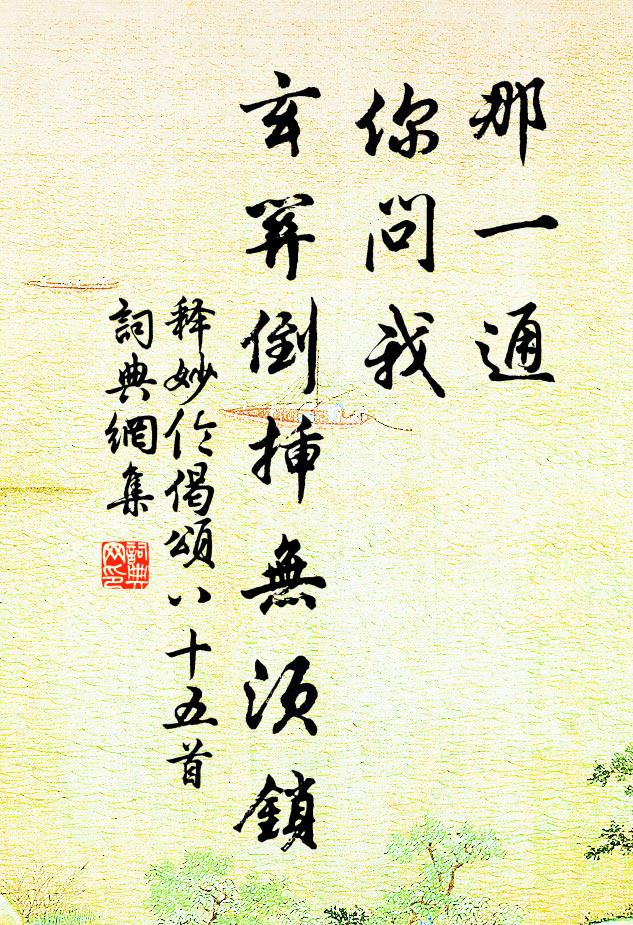 那一通
你問我
玄關倒揷無湏鎖
释妙伦偈頌八十五首
詞典網集
詞典网印